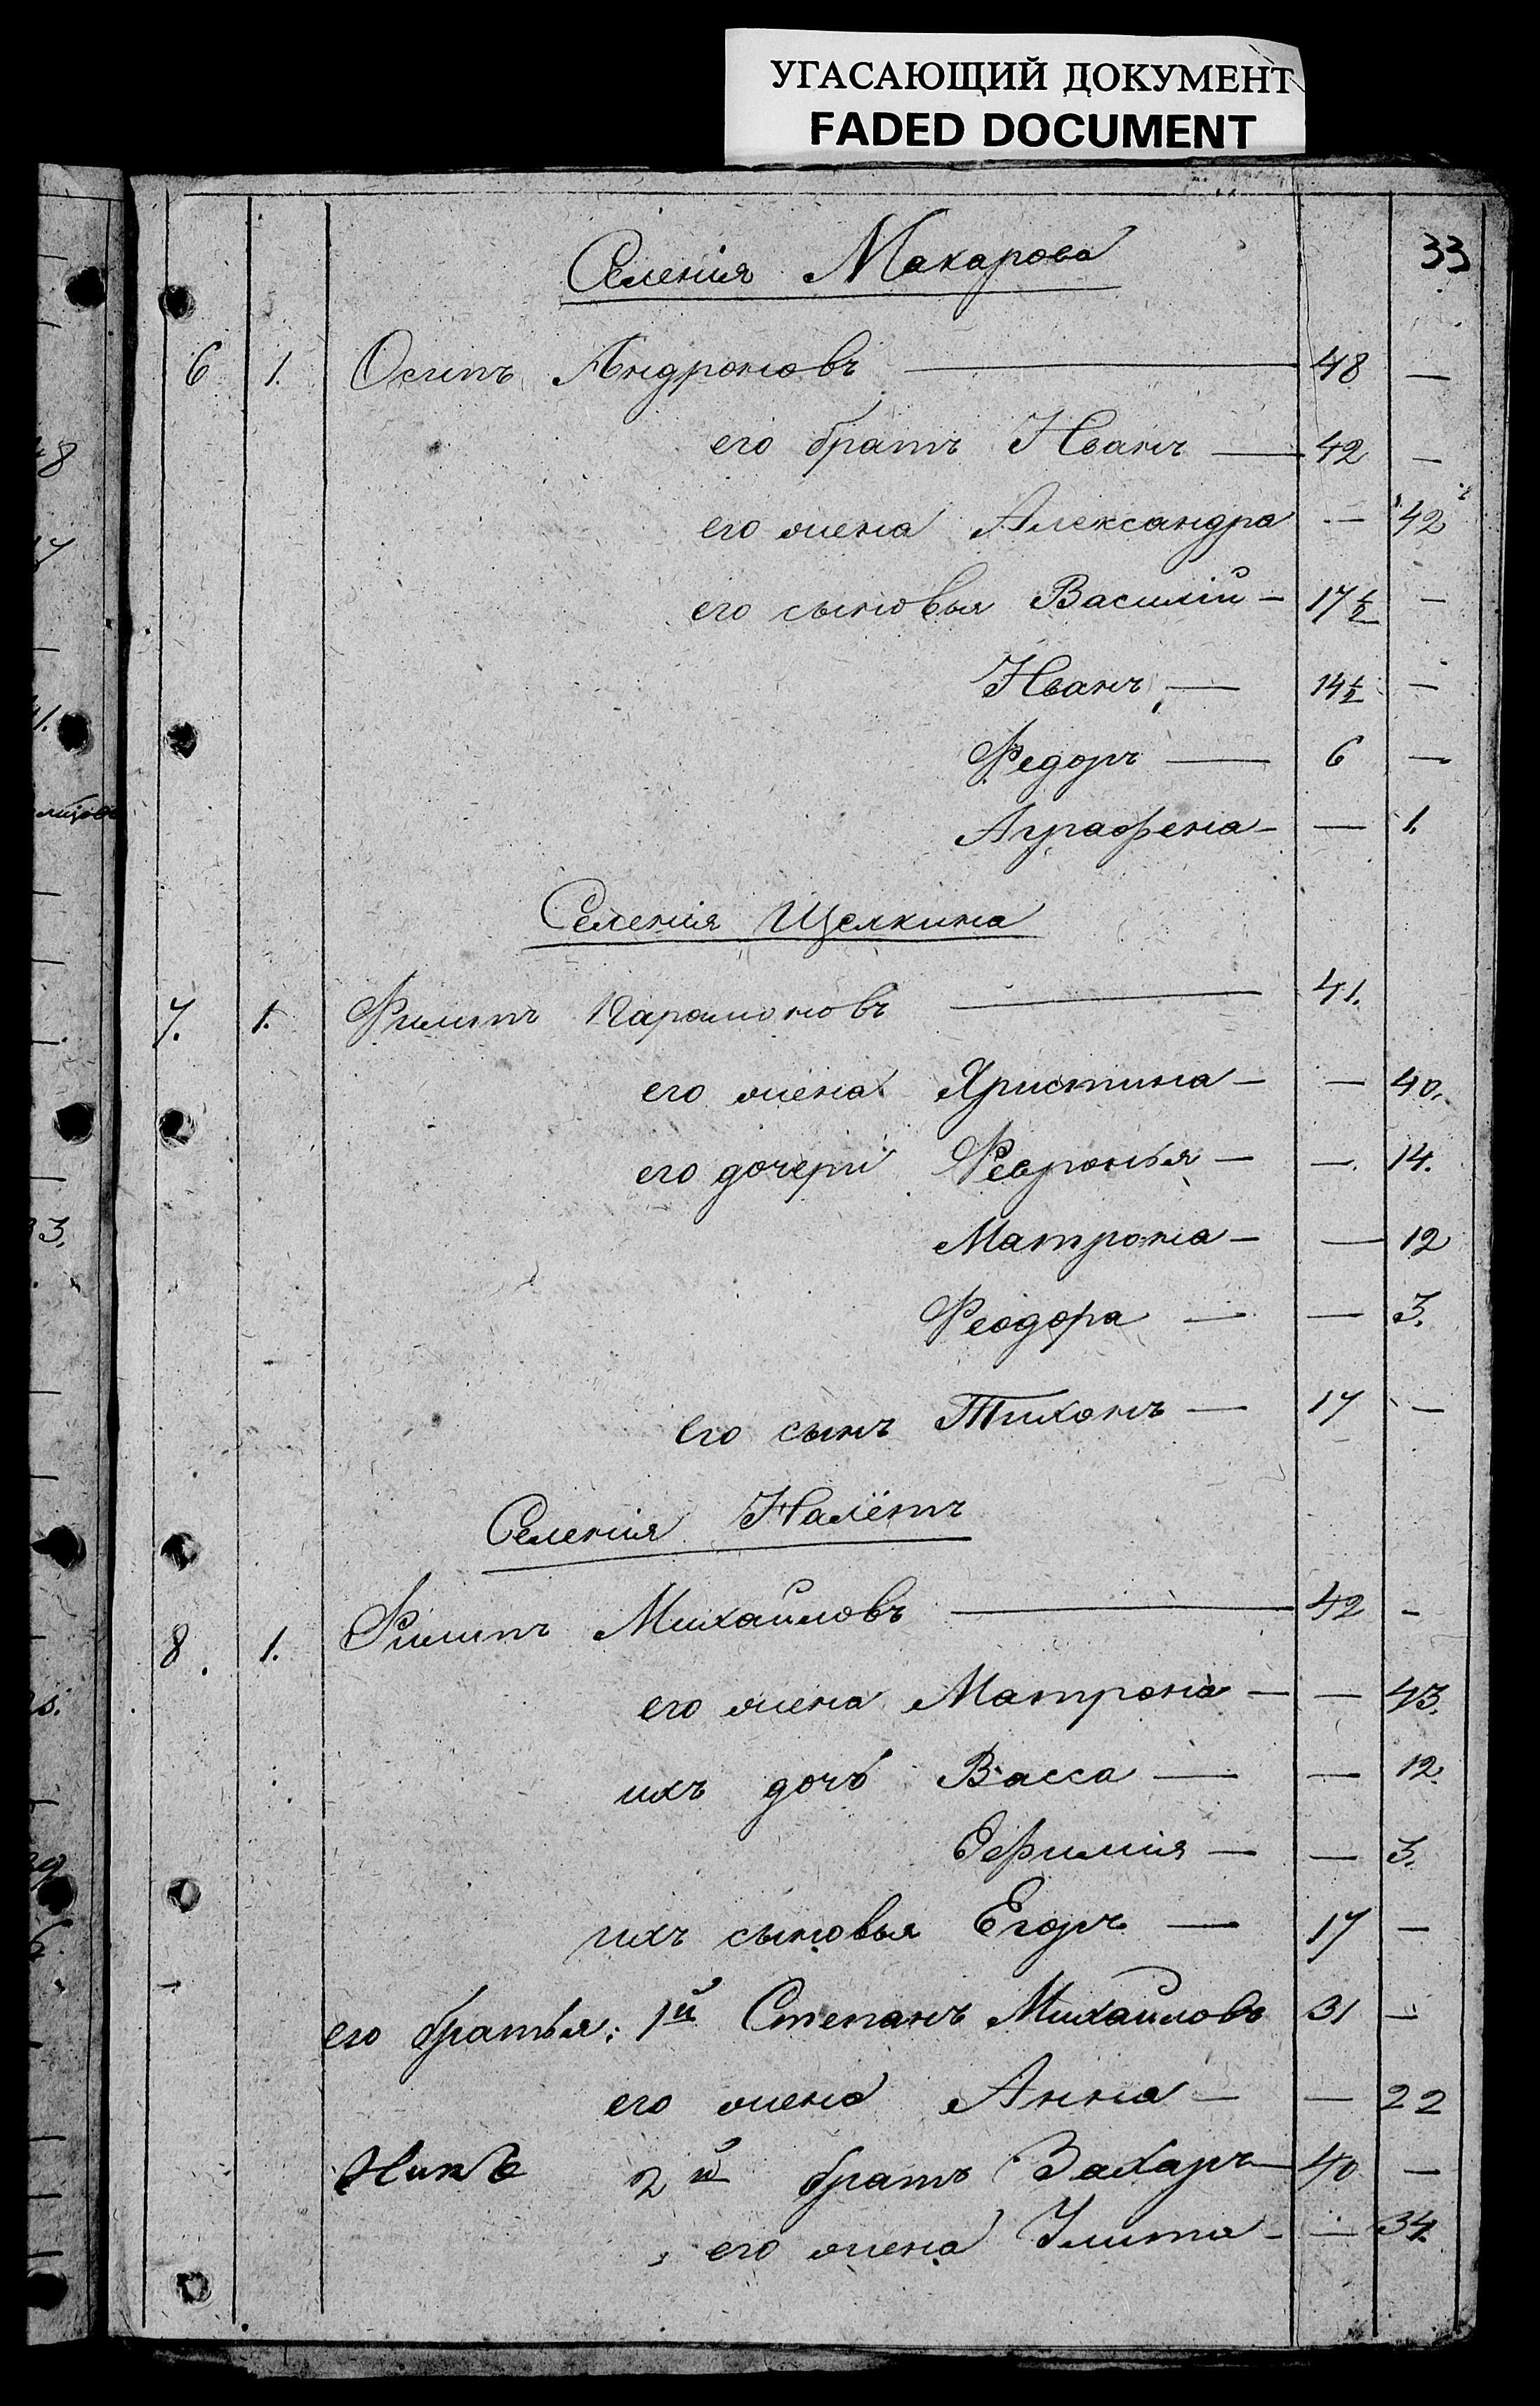 УГАСАЮЩИЙ ДОКУМЕНТ
FADED DOCUMENT
33
Селенія Макарова
6 1. Осипъ Андроновъ — 48 —
его братъ Иванъ — 42 —
его жена Александра — 42
его сыновья Василій — 17½ —
Иванъ — 14½ —
Федоръ — 6 —
Аграфена — — 1.
Селенія Щелкина
7. 1. Филипъ Парамоновъ — 41.
его жена Христина — — 40.
его дочери Февронья — — 14.
Матрона — — 12
Феодора — — 3.
его сынъ Тихонъ — 17 —
Селенія Налётъ
8. 1. Филипъ Михайловъ — 42 —
его жена Матрона — — 43.
ихъ дочь Васса — — 12.
Ефимія — — 3.
ихъ сыновья Егоръ — 17 —
его братья: 1й Степанъ Михайловъ 31 —
его жена Анна — — 22
2й братъ Захаръ — 40 —
его жена Улита — — 34.